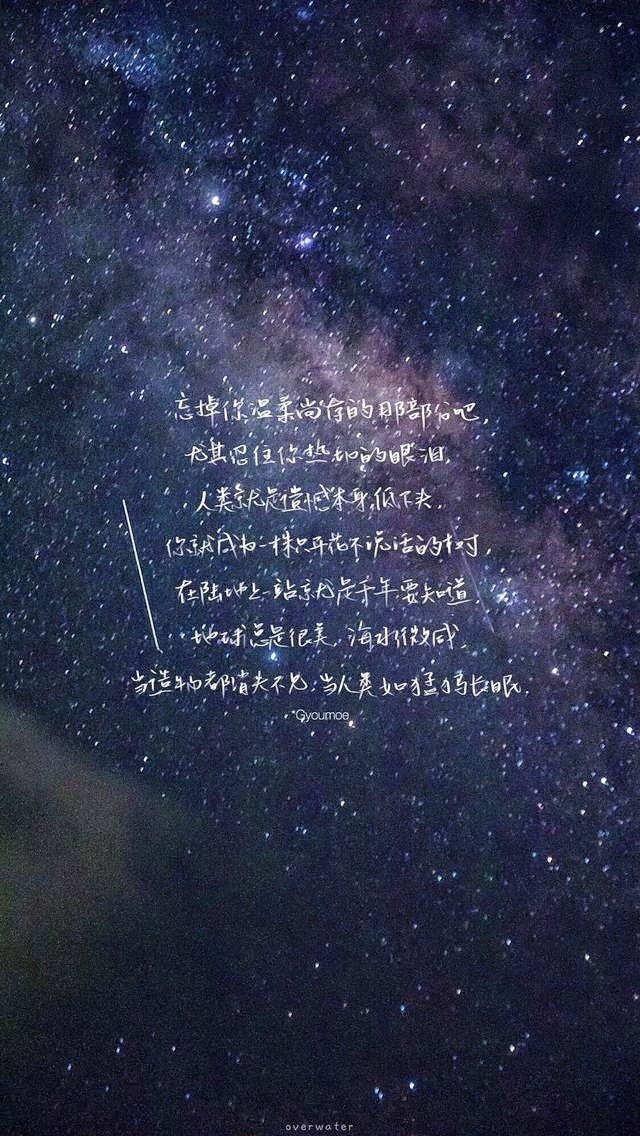 忘掉你温柔尚存的那部份吧,
尤其忍住你热如的眼泪,
人类就是遗憾本身,低下头,
你就成为一株只开花不说话的树,
在陆地上一站就是千年,要知道,
地球总是很美,海水微咸,
当造物都消失不见,当人类如猛犸长眠.
*Gyoumoe
overwater